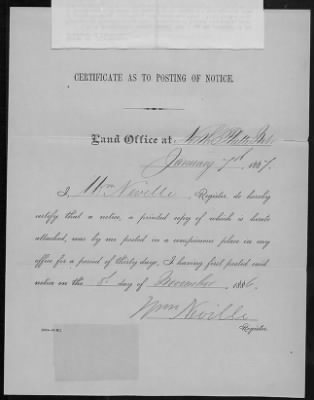 CERTIFICATE AS TO POSTING OF NOTICE.
Land Office at North Platte Neb
January 7th, 1887.
I, Wm Neville, Register, do hereby
certify that a notice, a printed copy of which is hereto
attached, was by me posted in a conspicuous place in my
office for a period of thirty days, I having first posted said
notice on the day of November, 1886.
Wm Neville
Register.